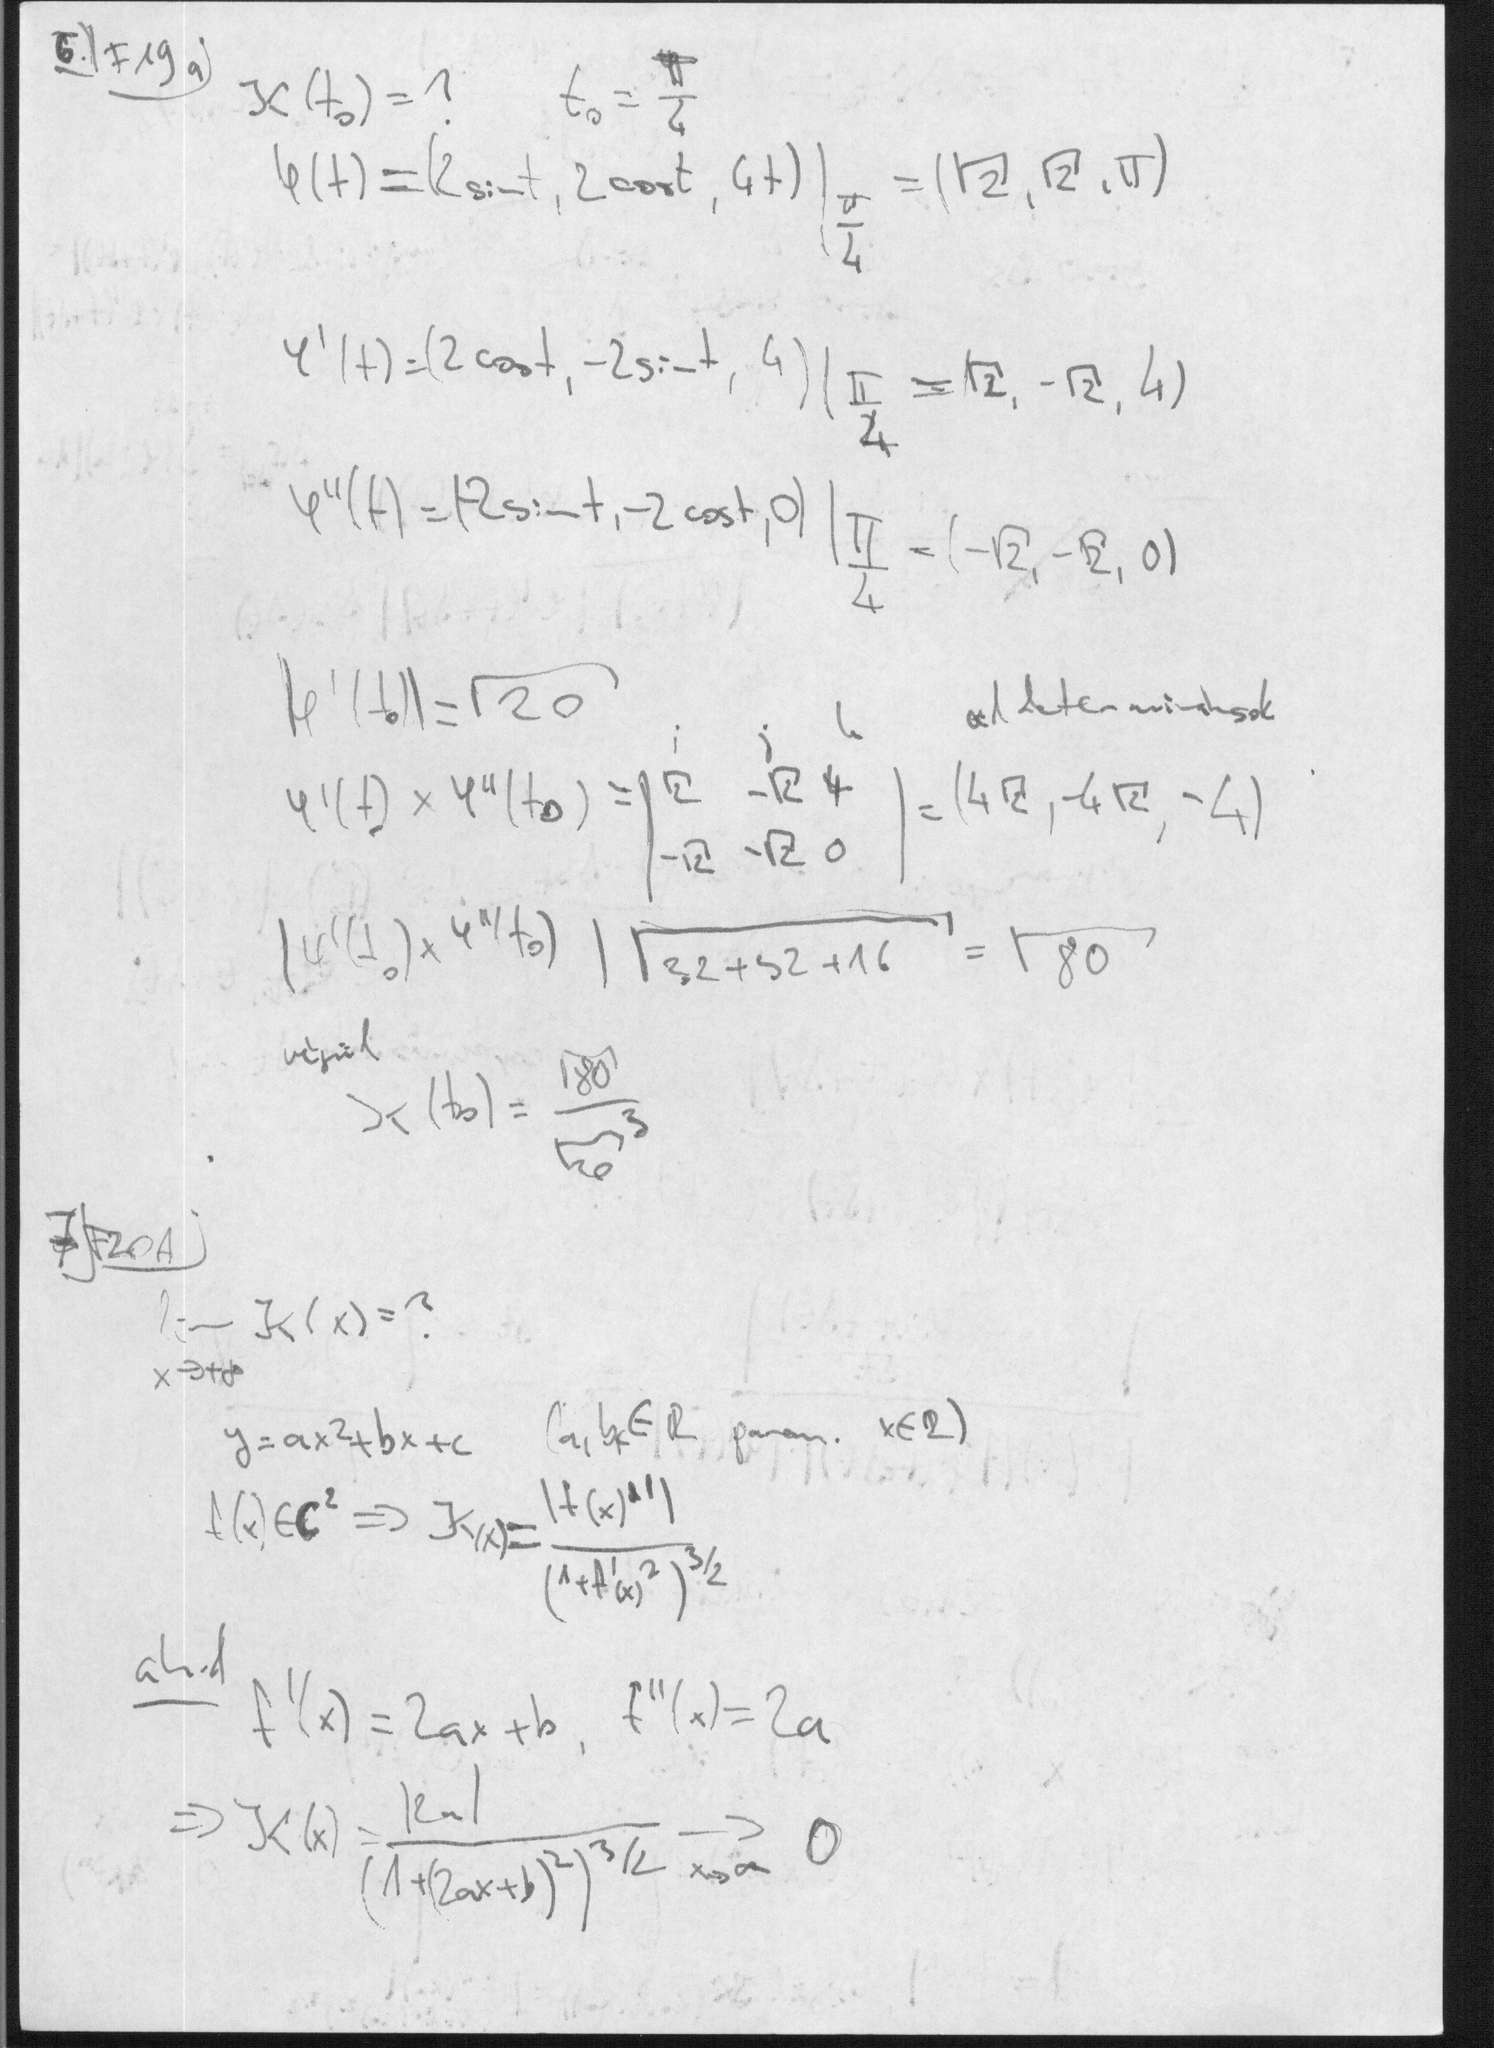 6.) F19 a)
ϰ(t₀) = ? t₀ = π/4
φ(t) = (2 sin t, 2 cos t, 4t) |π/4 = (√2, √2, π)
φ'(t) = (2 cos t, -2 sin t, 4) |π/4 = (√2, -√2, 4)
φ''(t) = (-2 sin t, -2 cos t, 0) |π/4 = (-√2, -√2, 0)
|φ'(t₀)| = √20
i j k
φ'(t₀) × φ''(t₀) = | √2 -√2 4 | = (4√2, -4√2, -4)
-√2 -√2 0
|φ'(t₀) × φ''(t₀)| √32+32+16 = √80
végül
ϰ(t₀) = √80 / √20³
7) F20A)
lim ϰ(x) = ?
x→+∞
y = ax²+bx+c (a, b, c ∈ ℝ param. x∈ℝ)
f(x) ∈ C² ⇒ ϰ(x) = |f(x)''| / (1+f'(x)²)^3/2
ahol
f'(x) = 2ax+b, f''(x) = 2a
⇒ ϰ(x) = |2a| / (1+(2ax+b)²)^3/2 → x→∞ 0